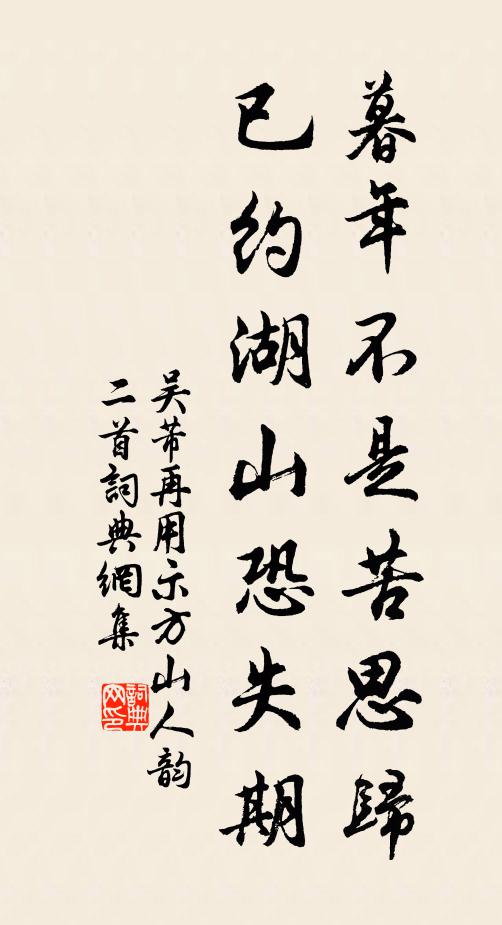 暮年不是苦思歸
已約湖山恐失期
吴芾再用示方山人韵
二首詞典網集
詞典网印